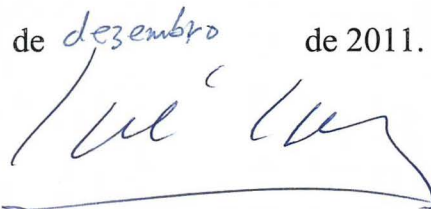 de dezembro de 2011.